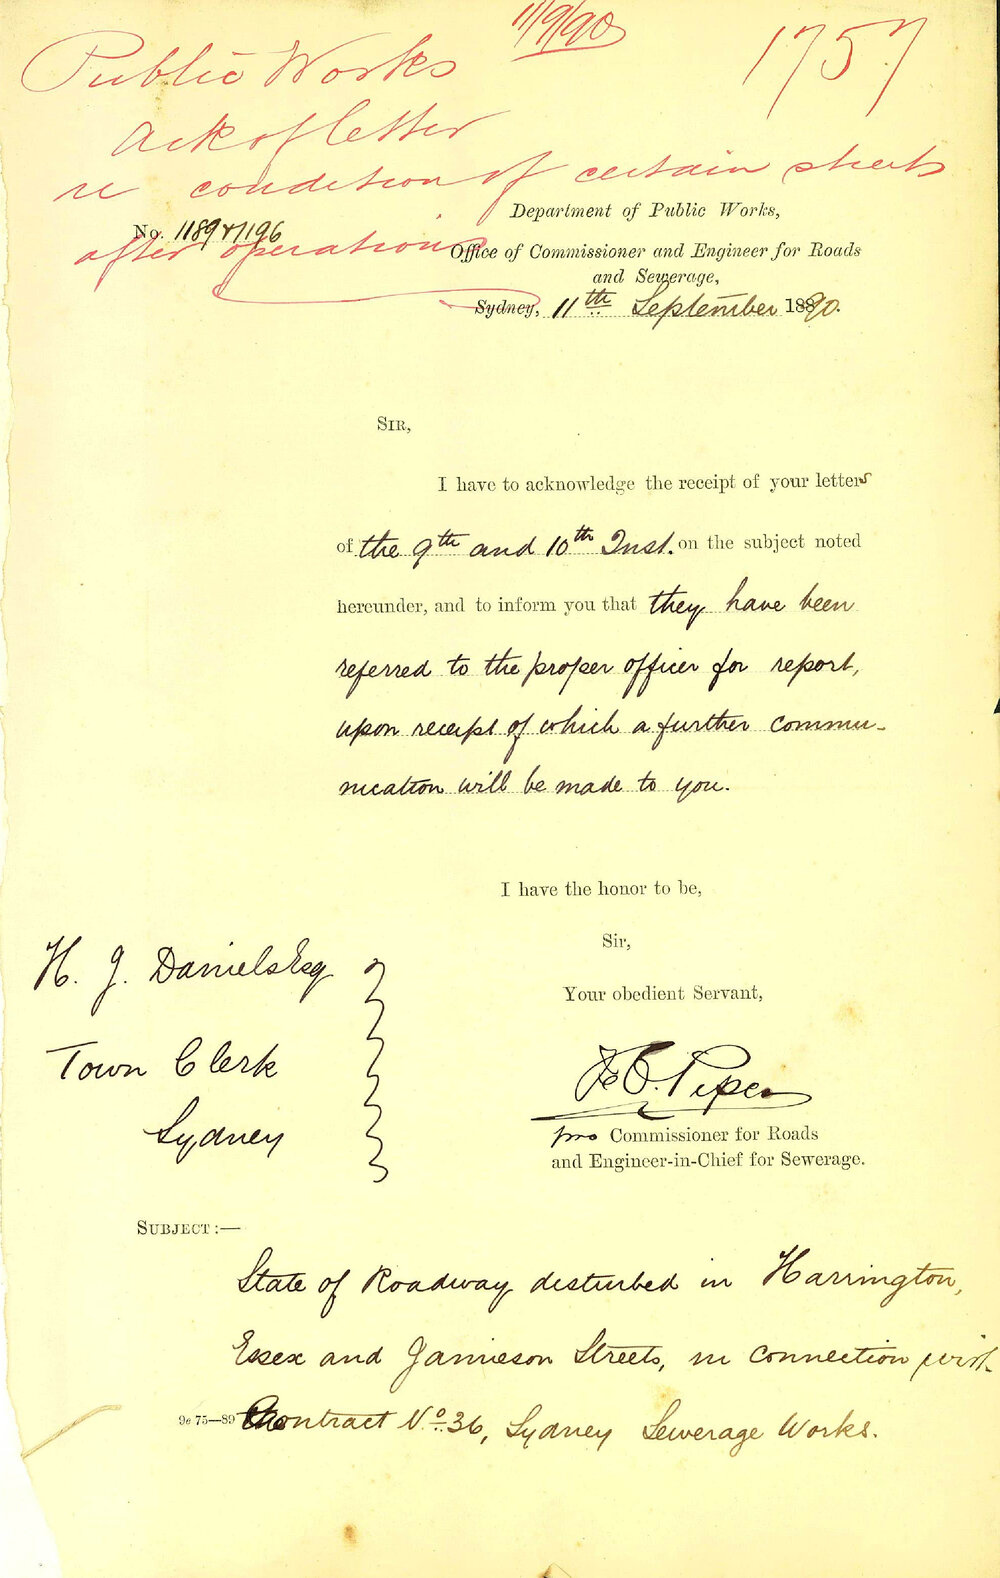 11/9/90
1757
Public Works
Ack of letter
re condition of certain streets
after operations
Department of Public Works,
No. 1189 & 1196
Office of Commissioner and Engineer for Roads
and Sewerage,
Sydney, 11th September 1890.
SIR,
I have to acknowledge the receipt of your letters
of the 9th and 10th Inst. on the subject noted
hereunder, and to inform you that they have been
referred to the proper officer for report,
upon receipt of which a further commu-
nication will be made to you.
I have the honor to be,
Sir,
Your obedient Servant,
H. J. Daniels Esq
Town Clerk
Sydney
Piper
pro Commissioner for Roads
and Engineer-in-Chief for Sewerage.
SUBJECT:—
State of Roadway disturbed in Harrington,
Essex and Jamieson Streets, in connection with
9e 75—89 Contract No. 36, Sydney Sewerage Works.